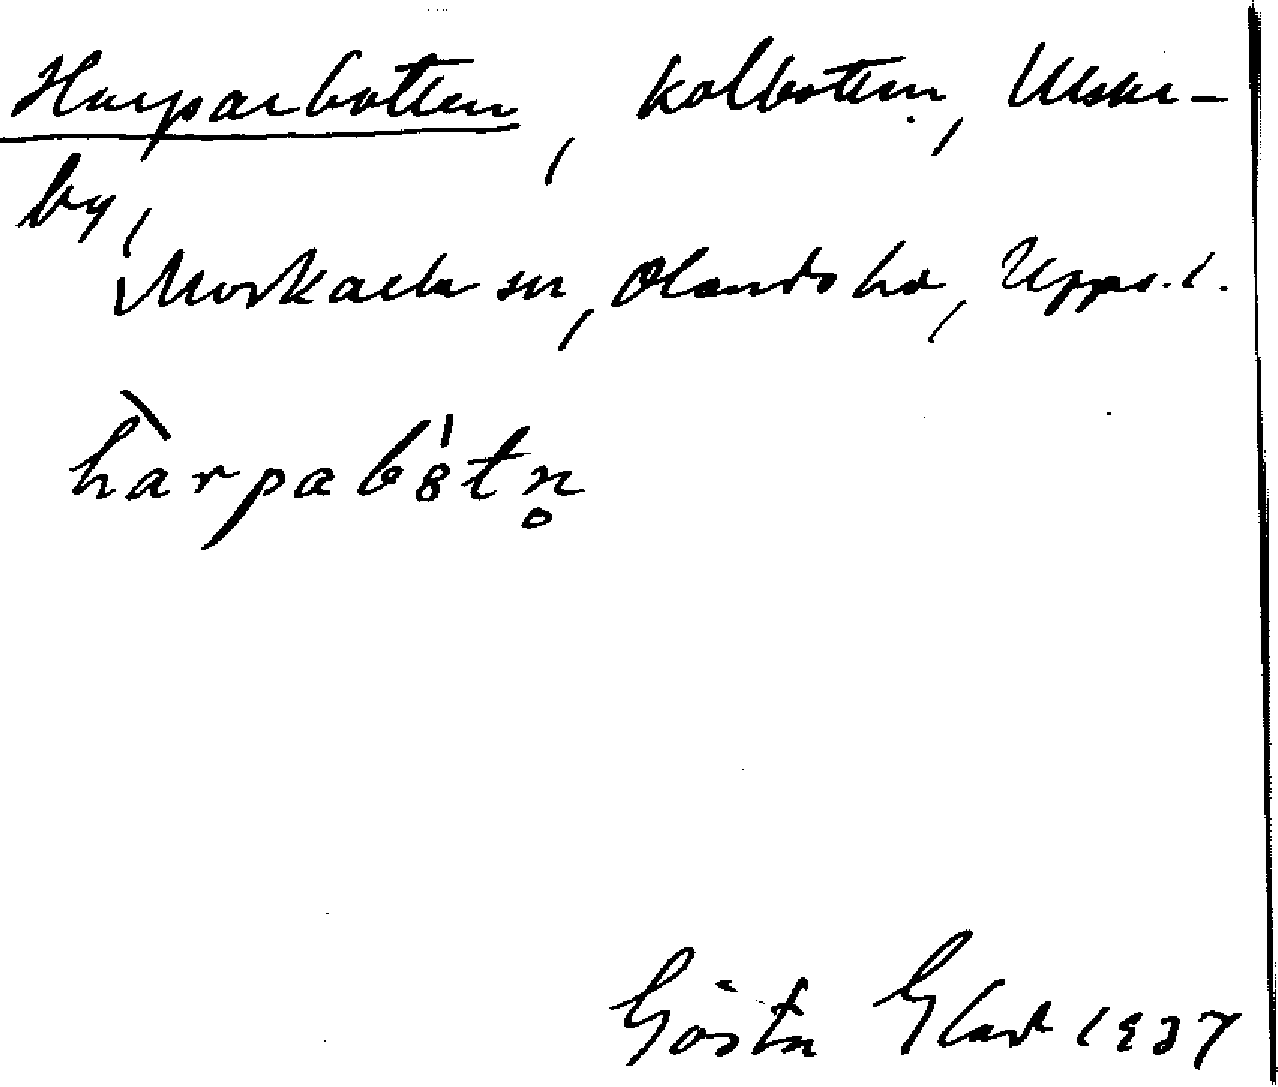 Harparbotten, kolbotten,
by,
Morkarla sn, Olands hd, Upps. l.
hàrpabåtn̥
Gösta Glad 1937